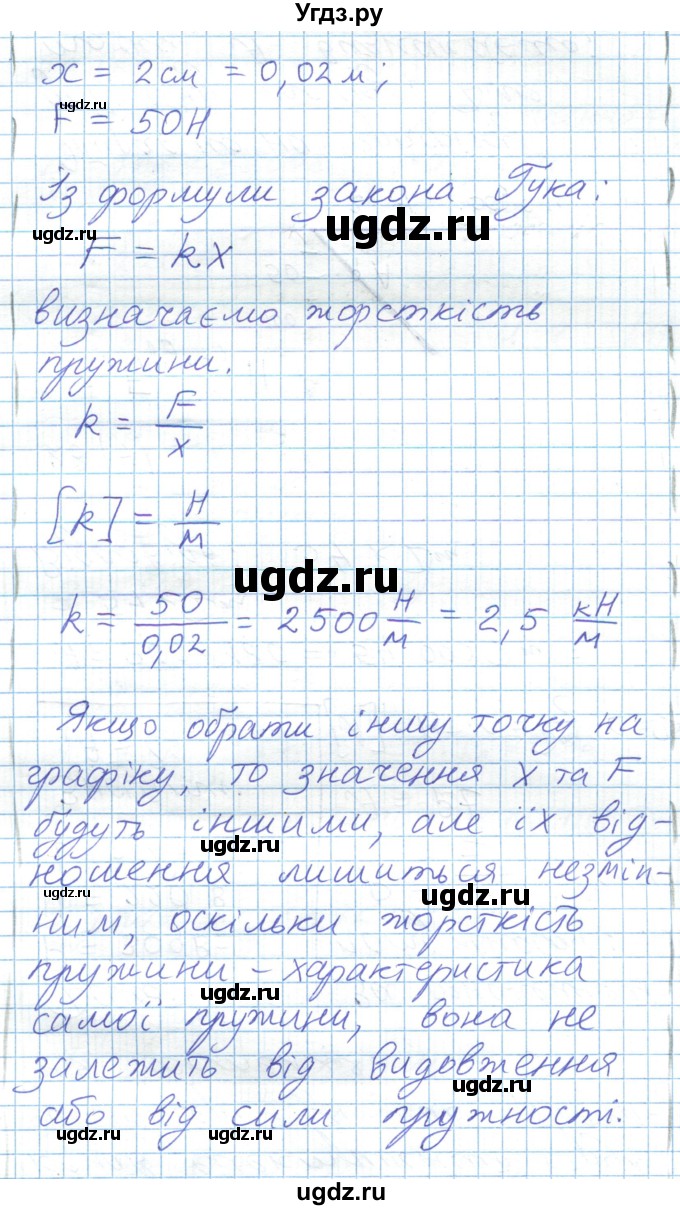 Угдз.ру
x = 2 см = 0,02 м;
ugdz.ru ugdz.ru
F = 50 Н
Із формули закона Гука:
ugdz.ru
F = kx
визначаємо жорсткість
пружини.
k = F/x
[k] = Н/м
ugdz.ru
k = 50/0,02 = 2500 Н/м = 2,5 кН/м
Якщо обрати іншу точку на
графіку, то значення x та F
будуть іншими, але їх від-
ugdz.ru
ношення лишиться незмін-
ugdz.ru ugdz.ru
ним, оскільки жорсткість
пружини – характеристика
ugdz.ru
самої пружини, вона не
залежить від видовження
ugdz.ru
або від сили пружності.
ugdz.ru ugdz.ru
ugdz.ru